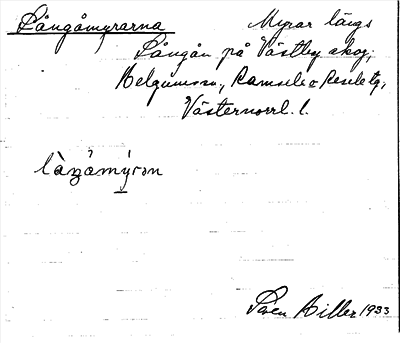 Långåmyrarna Myrar längs
Långån på Västby skog;
Helgumssn., Ramsele o Resele tg,
Västernorrl. l.
làŋåmýrɘn
Sven Hiller 1933